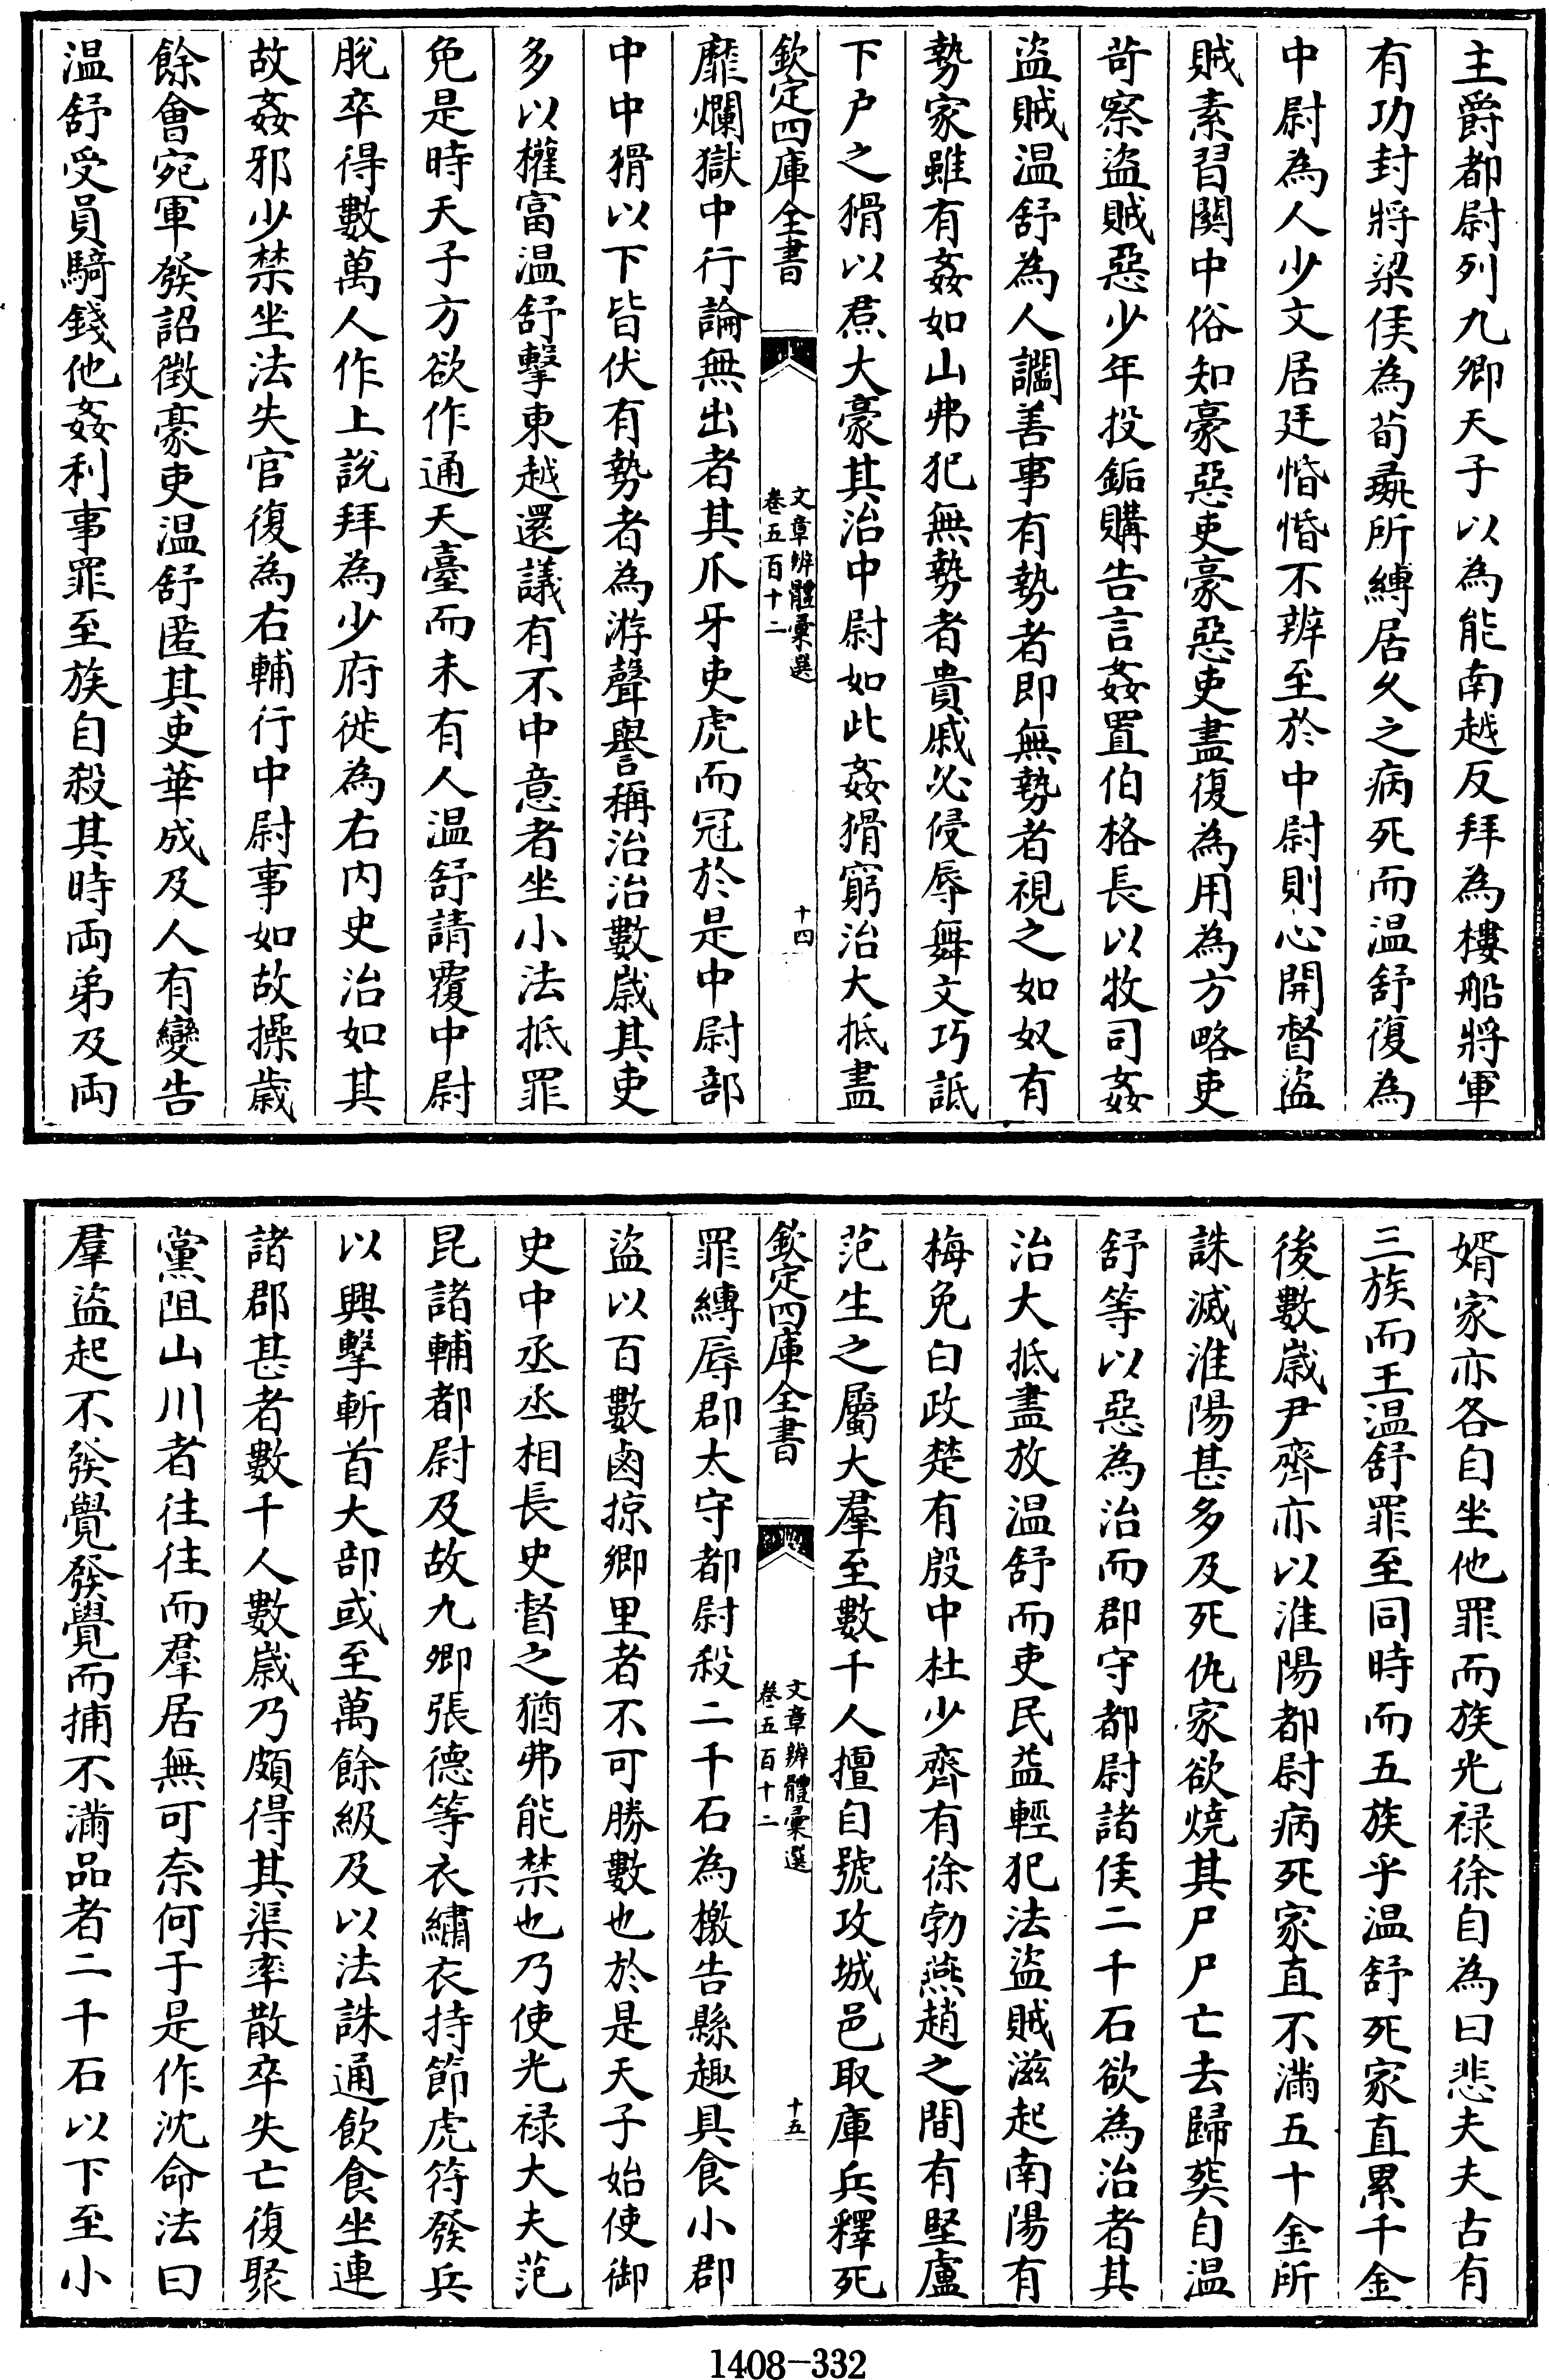 主爵都尉列九卿天子以為能南越反拜為樓船將軍
有功封將梁侯為荀彘所縛居久之病死而温舒復為
中尉為人少文居廷惛惛不辨至於中尉則心開督盜
賊素習關中俗知豪惡吏豪惡吏盡復為用為方略吏
苛察盜賊惡少年投缿購告言姦置伯格長以牧司姦
盜賊温舒為人讇善事有勢者即無勢者視之如奴有
勢家雖有姦如山弗犯無勢者貴戚必侵辱舞文巧詆
下户之猾以焄大豪其治中尉如此姦猾窮治大抵盡
欽定四庫全書
文章辨體彙選
卷五百十二
十四
靡爛獄中行論無出者其爪牙吏虎而冠於是中尉部
中中猾以下皆伏有勢者為游聲譽稱治治數嵗其吏
多以權富温舒擊東越還議有不中意者坐小法抵罪
免是時天子方欲作通天臺而未有人温舒請覆中尉
脫卒得數萬人作上說拜為少府徙為右内史治如其
故姦邪少禁坐法失官復為右輔行中尉事如故操歲
餘會宛軍發詔徵豪吏温舒匿其吏華成及人有變告
温舒受員騎錢他姦利事罪至族自殺其時両弟及両
婿家亦各自坐他罪而族光禄徐自為曰悲夫夫古有
三族而王温舒罪至同時而五族乎温舒死家直累千金
後數嵗尹齊亦以淮陽都尉病死家直不滿五十金所
誅滅淮陽甚多及死仇家欲燒其尸尸亡去歸葬自温
舒等以惡為治而郡守都尉諸侯二千石欲為治者其
治大抵盡放温舒而吏民益輕犯法盜賊滋起南陽有
梅免白政楚有殷中杜少齊有徐勃燕趙之間有堅盧
范生之屬大羣至數千人擅自號攻城邑取庫兵釋死
欽定四庫全書
文章辨體彙選
卷五百十二
十五
罪縳辱郡太守都尉殺二千石為檄告縣趣具食小郡
盜以百數鹵掠鄉里者不可勝數也於是天子始使御
史中丞丞相長史督之猶弗能禁也乃使光禄大夫范
昆諸輔都尉及故九卿張德等衣繡衣持節虎符發兵
以興擊斬首大部或至萬餘級及以法誅通飲食坐連
諸郡甚者數千人數嵗乃頗得其渠率散卒失亡復聚
黨阻山川者往往而羣居無可奈何于是作沈命法曰
羣盜起不發覺發覺而捕不滿品者二千石以下至小
1408-332